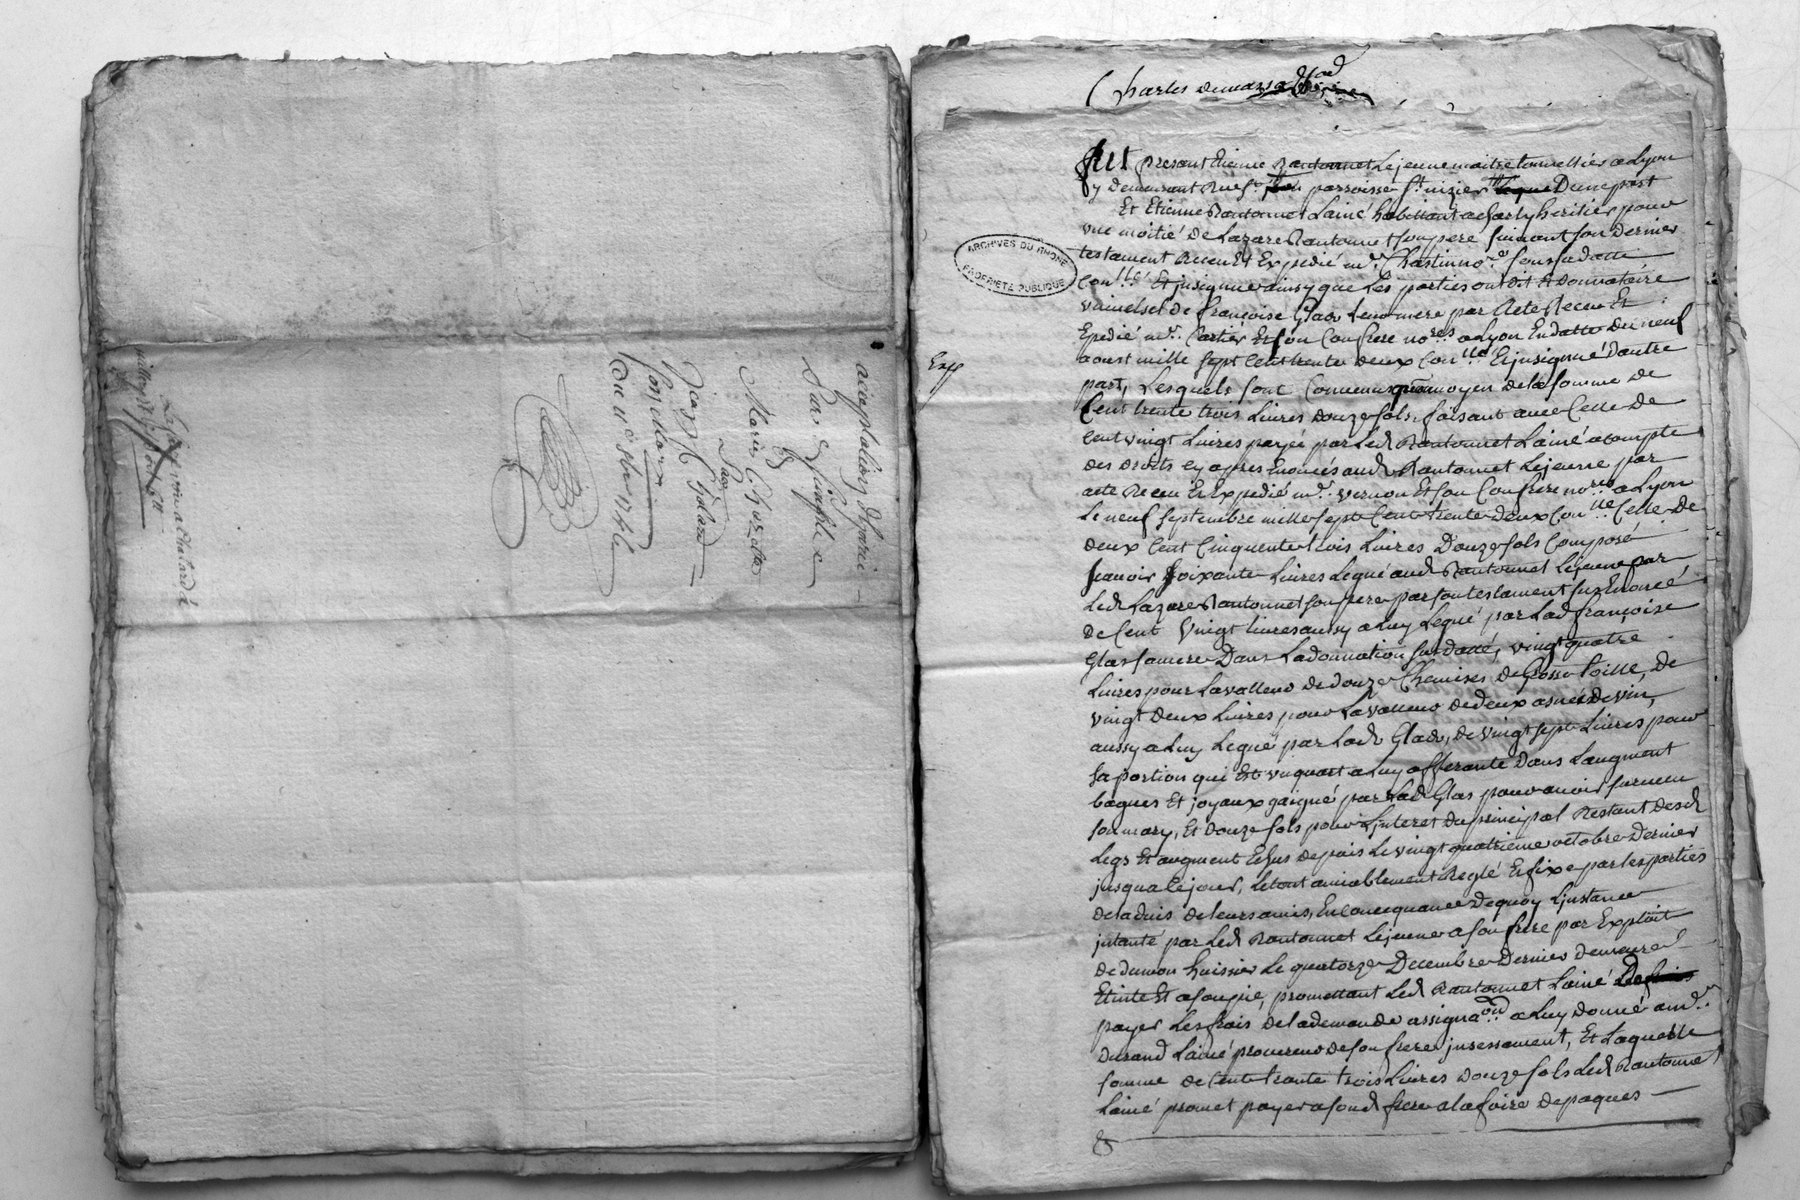 acceptation d'hoirie
Par Simple
Et
Marie Charlda
Par
Joseph Galand
Consolon
Du 11e 8bre 1741
a Chatard
Charles demassa
Fut present Etienne Rantonnet Lejeune maitre tonnellier a Lyon
y demeurant Rue parroisse St nizier D'une part
Et Etienne Rantonnet Lainé habittant a Charly heritier pour
vne moitié de Lazare Rantonnet son pere suivant son dernier
testament Receu Et Expedié me Chastin nore sous sa datte
ARCHIVES DU RHONE
PROPRIETE PUBLIQUE
Conllé Et jnsignué ainsy que Les parties ont dit Et Donnataire
vniuelsel de françoise Glas Leur mere par Acte Receu Et
Expedié me Cartier Et son Confrere nores a Lyon En datte du neuf
aoust mille sept Cent trente deux Conllé Et jnsignué D'autre
Exp
part, Lesquels sont Convenus qu'au moyen de la somme de
Cent trente trois Liures douze sols, faisant auec Celle de
Cent vingt Liures payée par Led Rantonnet Lainé a compte
des droits cy apres Enoncés aud Rantonnet Lejeune par
acte Receu Et Expedié me vernon Et son Confrere nores a Lyon
Le neuf septembre mille sept Cent trente deux Conlle Celle de
deux Cent Cinquente trois Liures Douze sols Composé
scauoir soixante Liures Legué aud Rantonnet Lejeune par
Led Lazare Rantonnet son pere par son testament sus Enoncé
de Cent vingt liures aussy a Luy Legué par Lad françoise
Glas sa mere Dans La donnation sus datté, vingt quatre
Liures pour La valleur de douze Chemises de Grosse toille, de
vingt deux Liures pour La valleur de deux asnées de vin,
aussy a Luy Legué par Lad Glas, de vingt sept Liures pour
sa portion qui Est vn quart a Luy afferante Dans Laugment
bagues Et joyaux gaigné par Lad Glas pour auoir suruecu
son mary, Et douze sols pour Ljnteret du principal Restant desd
Legs Et augment Echus depuis Le vingt quatrieme octobre Dernier
jusqua Ce jour, Le tout amiablement Reglé Et fixe par les parties
de laduis de leurs amis, En Consequance Dequoy Ljnstance
jntanté par Led Rantonnet Lejeune a son frere par Exploit
de dumon huissier Le quatorze Decembre Dernier demeure
Etinte Et assoupie, promettant Led Rantonnet Lainé
payer Les frais de la demande assignaon a Luy donné a me
Durand Lainé procureur de son frere jncessament, Et Laquelle
somme de Cent trante trois Liures douze sols Led Rantonnet
Lainé promet payer a sond frere a la foire de paques